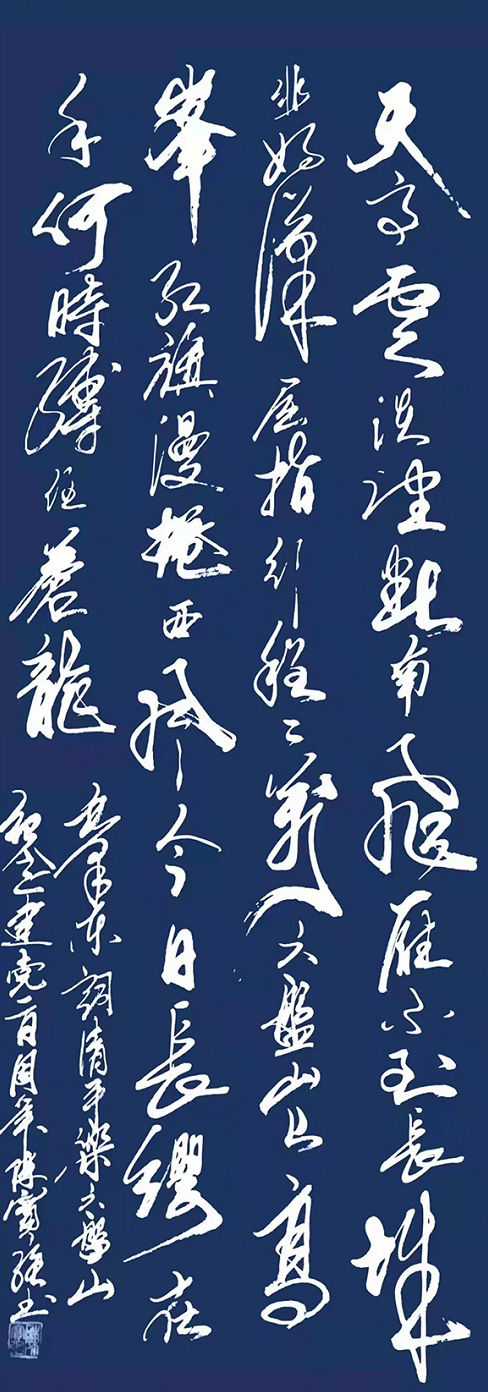 天高雲淡望斷南飛雁不到長城
非好漢屈指行程二萬六盤山上高
峯紅旗漫捲西風今日長纓在
手何時縛住蒼龍
毛澤东詞清平樂六盤山
紀念建党一百周年陳寶強书